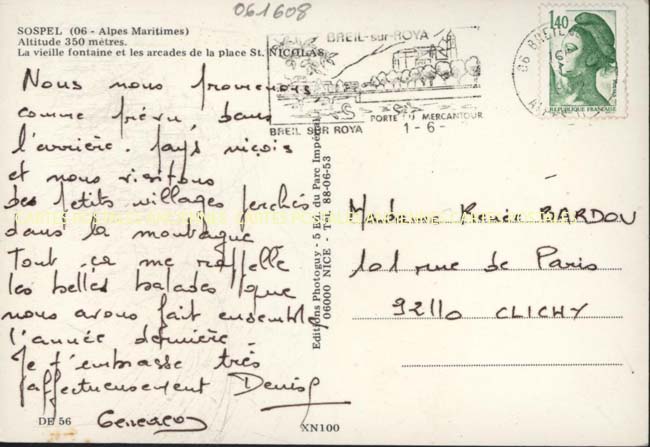 061608
SOSPEL (06 - Alpes Maritimes)
Altitude 350 mètres.
La vieille fontaine et les arcades de la place St. NICOLAS
BREIL-sur-ROYA
BREIL SUR ROYA
PORTE DU MERCANTOUR
1-6-
06 BREIL
1,40
REPUBLIQUE FRANCAISE
Nous nous promenons
comme prévu dans
l'arrière-pays niçois
et nous visitons
des petits villages perchés
dans la montagne
Tout ça me rappelle
les belles balades que
nous avons fait ensemble
l'année dernière.
Je t'embrasse très
affectueusement Denise
Editions Photoguy - 5 Bd. du Parc Impérial
06000 NICE - Tél. 88-06-53
Madame Renée BARDOU
101 rue de Paris
92110 CLICHY
DE 56
XN100